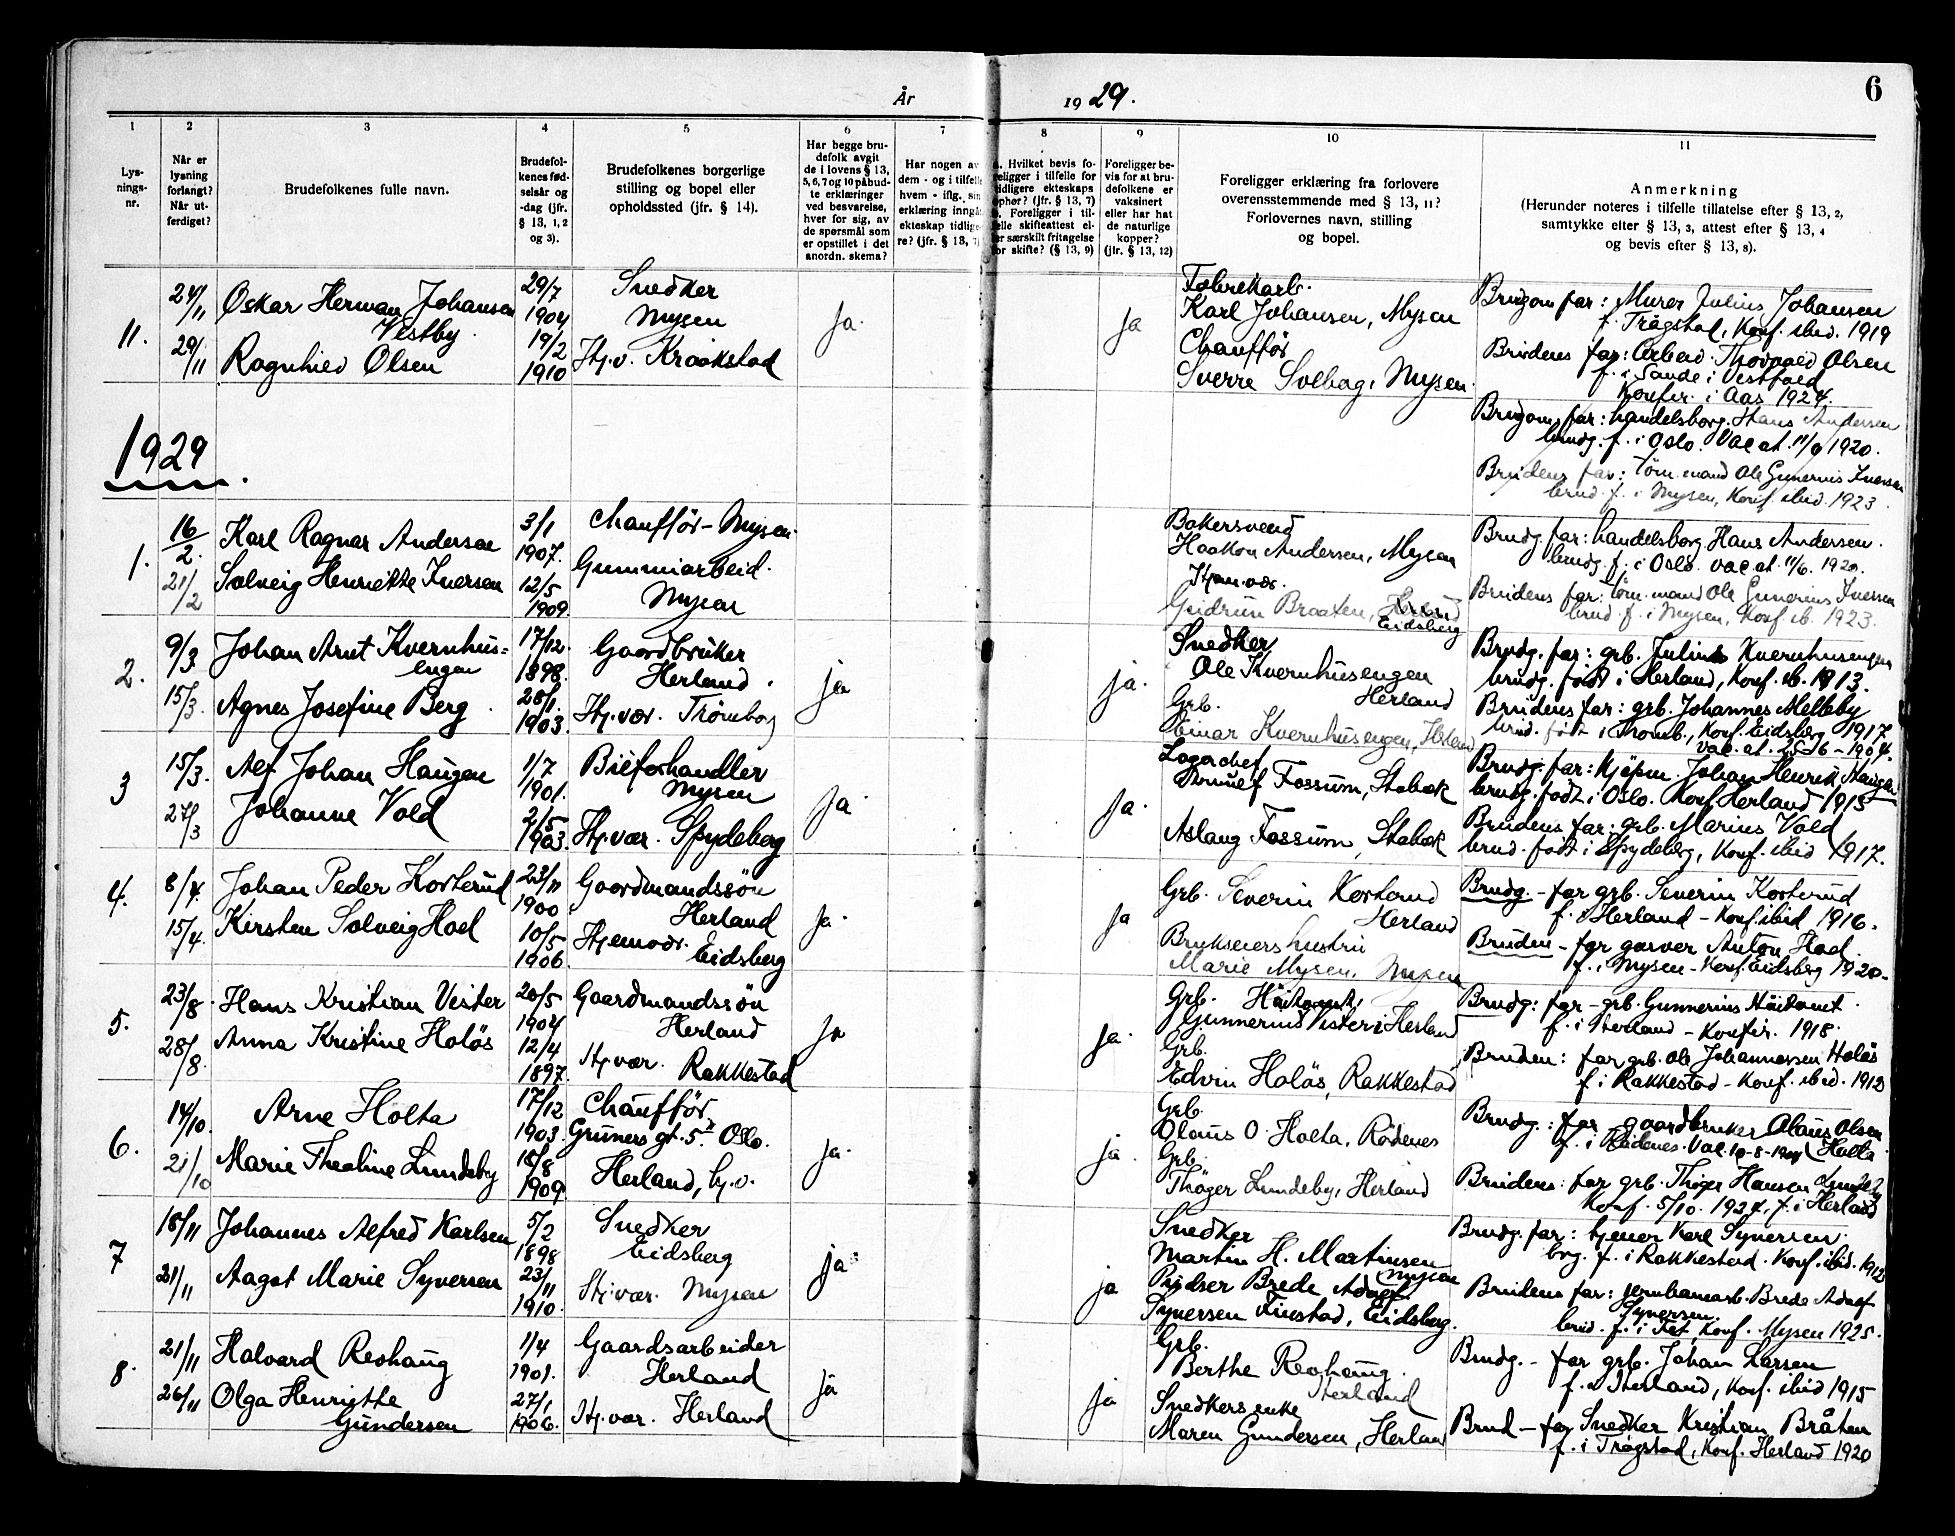 År 1929.
6
1
2
3
4
5
6
7
8
9
10
11
Lys-
nings-
nr.
Når er
lysning
forlangt?
Når ut-
ferdiget?
Brudefolkenes fulle navn.
Brudefol-
kenes fød-
selsår og
-dag (jfr.
§ 13, 1, 2
og 3).
Brudefolkenes borgerlige
stilling og bopel eller
opholdssted (jfr. § 14).
Har begge bru-
defolk avgit
de i lovens § 13,
5, 6, 7 og 10 påbud-
te erklæringer
ved besvarelse,
hver for sig, av
de spørsmål som
er opstillet i det
anordn. skema?
Har nogen av
dem - og i tilfelle
hvem - iflg. sin
erklæring inngå
ekteskap tidlige-
re? (jfr. § 13, 7)
. Hvilket bevis fo-
religger i tilfelle for
tidligere ekteskaps
ophør? (jfr. § 13, 7)
. Foreligger i til-
felle skifteattest el-
ler særskilt fritagelse
for skifte? (§ 13, 9)
Foreligger be-
vis for at bru-
defolkene er
vaksinert
eller har hat
de naturlige
kopper?
(jfr. § 13, 12)
Foreligger erklæring fra forlovere
overensstemmende med § 13, 11?
Forlovernes navn, stilling
og bopel.
Anmerkning
(Herunder noteres i tilfelle tillatelse efter § 13, 2,
samtykke efter § 13, 3, attest efter § 13, 4
og bevis efter § 13, 8).
11.
24/11
29/11
Oskar Herman Johansen
Vestby.
Ragnhild Olsen
29/7
1904
19/2
1910
Snedker
Mysen
Hj.v. Kraakstad
ja.
ja
Fabrikarb.
Karl Johansen, Mysen
Chauffør
Sverre Solhag, Mysen.
Brudgom far: Murer Julius Johansen
f. Trøgstad, Konf. ibid. 1919
Brudens far: Arbeid. Thorvald Olsen
f. i Sande i Vestfold
Konfir. i Aas 1924.
1929.
Brudgoms far: handelsborg. Hans Andersen
brudg. f. i Oslo. Vac at. 11/6 1920.
Brudens far: tøm.mand Ole Gunerius Iversen
brud. f. i Mysen, Konf. ibid. 1923.
1.
16/2.
21/2
Karl Ragnar Andersen
Solveig Henriette Iversen
3/1
1907.
12/5
1909.
Chauffør - Mysen.
Gummiarbeid.
Mysen
Bakersvend
Haakon Andersen, Mysen
Hjem.vær.
Gudrun Braaten,
Eidsberg
Brudg. far: handelsborg. Hans Andersen.
brudg. f. i Oslo. vac at. 11/6. 1920.
Brudens far: tøm.mand Ole Gunerius Iversen
brud f. i Mysen, Konf. ib. 1923.
2.
9/3
15/3.
Johan Arnt Kvernhus-
engen
Agnes Josefine Berg.
17/12.
1898.
28/1.
1903.
Gaardbruker
Herland.
Hj.vær. Trømborg
ja
ja.
Snedker
Ole Kvernhusengen
Herland
Grb.
Einar Kvernhusengen, Herland
Brudg. far: grb. Julius Kvernhusengen
brudg. født i Herland, Konf. ib. 1913.
Brudens far: grb. Johannes Melleby
brud. født i Tromb., Konf. Eidsberg 1917
vac. at. 25/6 - 1904.
3
15/3.
27/3
Alf Johan Haugen
Johanne Vold
1/7
1901.
2/5
1903.
Bilforhandler
Mysen
Hj.vær. Spydeberg
ja.
ja.
Lagerchef
Fossum, Stabæk
Aslaug Fossum, Stabæk
Brudg. far: kjøpm. Johan Henrik Haugen
brudg. født i Oslo. Konf. Herland 1915
Brudens far: grb. Marius Vold
brud. født i Spydeberg, Konf. ibid 1917.
4.
8/4.
15/4.
Johan Peder Korterud
Kirsten Solveig Hoel
23/11
1900
10/5
1906.
Gaardmandssøn
Herland
Hjemvær.
Eidsberg
ja.
ja
Grb. Severin Korterud
Herland
Brukseiers hustru
Marie Mysen, Mysen
Brudg. - far grb. Severin Korterud
f. i Herland - Konf ibid 1916.
Bruden - far garver Anton Hoel.
f. i Mysen - Konf. Eidsberg 1920-
5.
23/8.
28/8
Hans Kristian Vister
Anna Kristine Holøs
20/5
1904
12/4
1897.
Gaardmandssøn
Herland
Hj.vær. Rakkestad
ja
ja.
Grb.
Gunnerius Vister i Herland
Grb.
Edvin Holøs, Rakkestad
Brudg: far - grb. Gunnerius
f. i Herland - Konfir. 1918.
Bruden: far grb. Ole Johannessen Holøs
f. i Rakkestad - Konf. ibid. 1912
6.
14/10.
21/10
Arne Holta
Marie Thealine Lundeby
17/12
1903.
18/8
1909
Chauffør
Gruners gt. 5 Oslo.
Herland, hj.v.
ja.
ja.
Grb.
Olaus O. Holta, Rødenes
Grb.
Thøger Lundeby, Herland
Brudg.: far gaardbruker Olaus Olsen
f. i Rødenes. Vac. 10-8-1904 Holta
Brudens: far grb. Thøger Hansen Lundeby
Konf. 5/10. 1924, f. i Herland
7
18/11
21/11
Johannes Alfred Karlsen
Aagot Marie Syversen
5/2
1898
23/11
1910.
Snedker
Eidsberg
Hj.vær. Mysen
ja
ja
Snedker
Martin H. Martinsen
Mysen
Pudser Brede Adolf
Syversen Finstad, Eidsberg.
Brudg. far: tjener Karl Syversen.
brg. f. i Rakkestad. Konf. ibid. 1912
Brudens far: jernbanearb. Brede Adolf
Syversen.
brud. f. i Fet Konf. Mysen 1925.
8.
21/11
26/11
Halvard Reohaug
Olga Henriette
Gundersen
1/4
1901.
27/1
1906.
Gaardsarbeider
Herland
Hj.vær. Herland
ja
ja
Grb.
Berthe Reohaug.
Herland
Snedkers enke
Maren Gundersen, Herland
Brudg. - far grb. Johan Larsen
f. i Herland, Konf. ibid 1915
Brud - far Snedker Kristian Bråten
f. i Trøgstad, Konf. Herland 1920